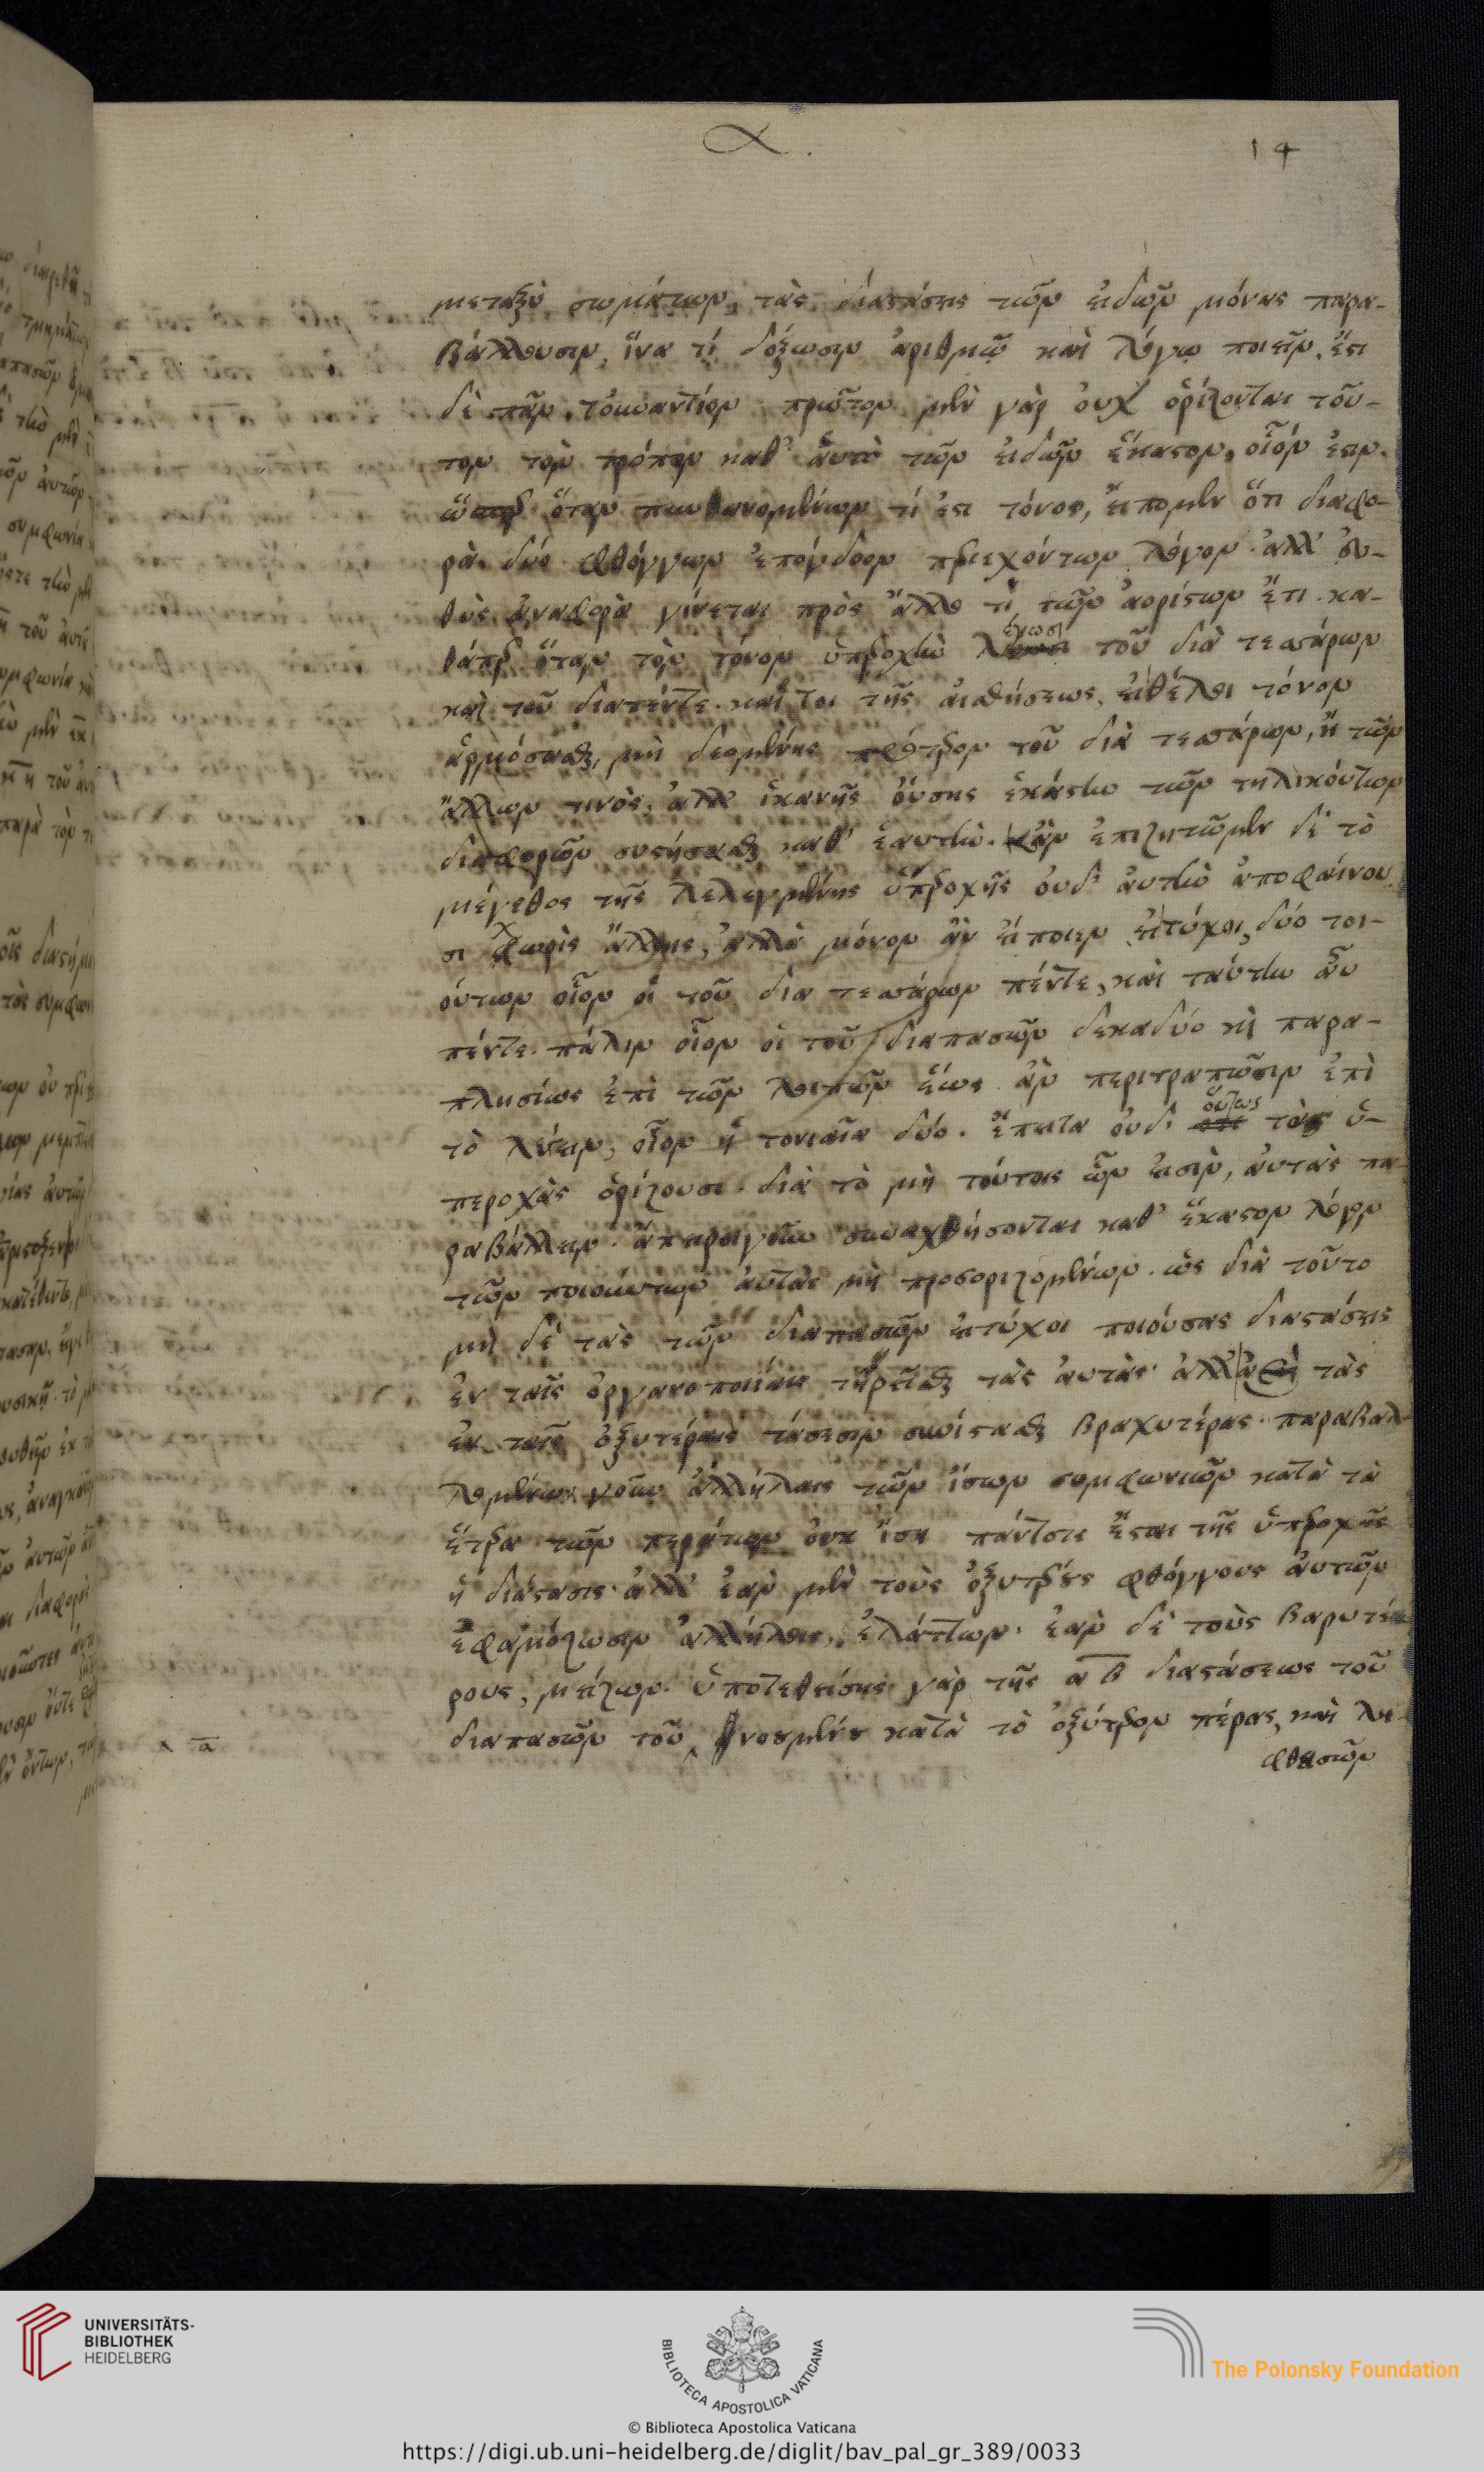 α.
14
μεταξὺ σωμάτων, τὰς διαστάσεις τῶν εἰδῶν μόνας παρα-
βάλλουσιν, ἵνα τί δόξωσιν ἀριθμῷ καὶ λόγῳ ποιεῖν. ἔστι
δὲ πᾶν τὀυναντίον. πρῶτον μὲν γὰρ οὐχ ὁρίζονται τοῦ-
τον τὸν τρόπον καθ' ἁυτὸ τῶν εἰδῶν ἕκαστον, οἷόν ἐστιν.
ὥσπερ ὅταν πυνθανομένων τί ἐστι τόνος, εἴπομεν ὅτι διαφο-
ρὰ δύο φθόγγων ἐπόγδοον περιεχόντων λόγον. ἀλλ' ἐυ-
θὺς ἀναφορὰ γίνεται πρὸς ἄλλο τὶ τῶν ἀορίστων ἔτι. κα-
θάπερ ὅταν τὸν τόνον ὑπεροχὴν λέγωσι τοῦ διὰ τεσσάρων
καὶ τοῦ διαπέντε. καί τοι τῆς αἰσθήσεως, εἰ θέλοι τόνον
ἁρμόσασθαι, μὴ δεομένης πρότερον τοῦ διὰ τεσσάρων, ἢ τῶν
ἄλλων τινὸς, ἀλλ' ἱκανῆς οὔσης ἑκάστην τῶν τηλικούτων
διαφορῶν συστήσασθαι καθ' ἑαυτήν. κἂν ἐπιζητῶμεν δὲ τὸ
μέγεθος τῆς λελεγμένης ὑπεροχῆς οὐδ' ἀυτὴν ἀποφαίνου
σι χωρὶς ἄλλης, ἀλλὰ μόνον ἂν εἴποιεν εἰ τύχοι, δύο τοι-
ούτων οἷον οἱ τοῦ δια τεσσάρων πέντε, καὶ ταύτην ἂυ
πέντε. πάλιν οἷον οἱ τοῦ διαπασῶν δεκαδύο καὶ παρα-
πλησίως ἐπὶ τῶν λοιπῶν ἕως ἂν περιτραπῶσιν ἐπὶ
τὸ λέγειν, οἷον ἡ τονιαῖα δύο. ἔπειτα οὐδ' οὕτως τὰς ὑ-
περοχὰς ὁρίζουσι. διὰ τὸ μὴ τούτοις ὧν εἰσὶν, ἀυτὰς πα
ραβάλλειν. ἄπειροι γοῦν συναχθήσονται καθ' ἕκαστον λόγον
τῶν ποιούντων ἀυτὰς μὴ προσοριζομένων. ὡς διὰ τοῦτο
μὴ δὲ τὰς τῶν διαπασῶν εἰ τύχοι ποιούσας διαστάσεις
ἐν ταῖς ὀργανοποιίαις τηρεῖσθαι τὰς ἀυτὰς. ἀλλ' ἀεὶ τὰς
ἐν ταῖς ὀξυτέραις τάσεσιν συνίστασθαι βραχυτέρας. παραβαλ-
λομένων γοῦν ἀλλήλαις τῶν ἴσων συμφωνιῶν κατὰ τὰ
ἕτερα τῶν περάτων οὐκ ἴση πάντοτε ἔσται τῆς ὑπεροχῆς
ἡ διάστασις. ἀλλ' ἐὰν μὲν τοὺς ὀξυτέρους φθόγγους ἀυτῶν
ἐφαρμόζωσιν ἀλλήλοις, ἐλάττων. ἐὰν δὲ τοὺς βαρυτέ
ρους, μείζων. ὑποτεθείσης γὰρ τῆς α β διαστάσεως τοῦ
διαπασῶν τοῦ νοουμένου κατὰ τὸ ὀξύτερον πέρας, καὶ λη
φθεισῶν
ᾱ
UNIVERSITÄTS-
BIBLIOTHEK
HEIDELBERG
BIBLIOTECA APOSTOLICA VATICANA
The Polonsky Foundation
© Biblioteca Apostolica Vaticana
https://digi.ub.uni-heidelberg.de/diglit/bav_pal_gr_389/0033